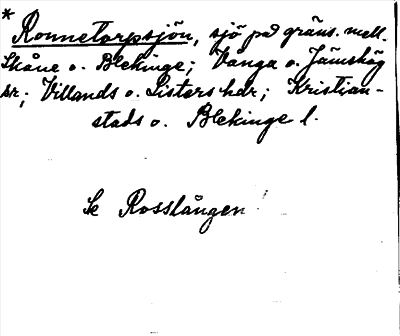 * Ronnetorpsjön, sjö på gräns. mell.
Skåne o. Blekinge; Vånga o. Jämshög
snr; Villands o. Listers hdr; Kristian-
stads o. Blekinge l.
Se Rosslången